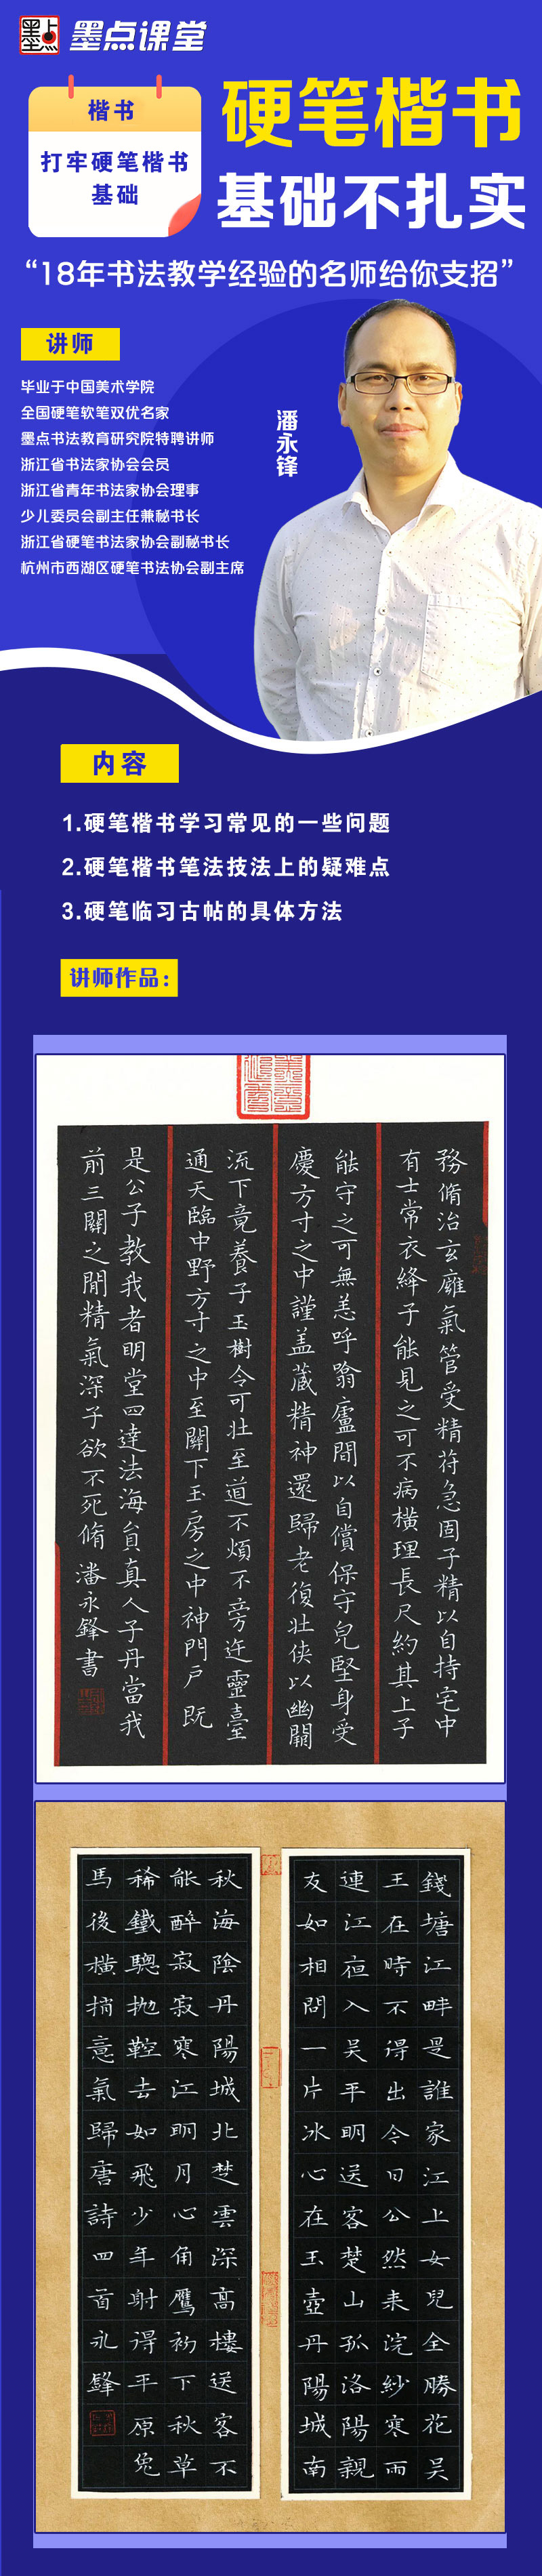 墨点
墨点课堂
楷书
打牢硬笔楷书
基础
硬笔楷书
基础不扎实
“18年书法教学经验的名师给你支招”
讲师
毕业于中国美术学院
全国硬笔软笔双优名家
墨点书法教育研究院特聘讲师
浙江省书法家协会会员
浙江省青年书法家协会理事
少儿委员会副主任兼秘书长
浙江省硬笔书法家协会副秘书长
杭州市西湖区硬笔书法协会副主席
潘永锋
内容
1.硬笔楷书学习常见的一些问题
2.硬笔楷书笔法技法上的疑难点
3.硬笔临习古帖的具体方法
讲师作品：
務脩治玄廱氣管受精苻急固子精以自持宅中
有士常衣絳子能見之可不病橫理長尺約其上子
能守之可無恙呼翕廬間以自償保守皃堅身受
慶方寸之中謹盖蔵精神還歸老復壮俠以幽闕
流下竟養子玉樹令可壮至道不煩不旁迕靈臺
通天臨中野方寸之中至關下玉房之中神門戶既
是公子教我者明堂四達法海貟真人子丹當我
前三關之間精氣深子欲不死脩 潘永鋒書
錢塘江畔是誰家江上女兒全勝花吴
王在時不得出今日公然来浣紗寒雨
連江夜入吴平明送客楚山孤洛陽親
友如相問一片冰心在玉壺丹陽城南
秋海陰丹陽城北楚雲深高樓送客不
能醉寂寂寒江明月心角鷹初下秋草
稀鐵驄抛鞚去如飛少年射得平原兔
馬後橫捎意氣歸唐詩四首永鋒